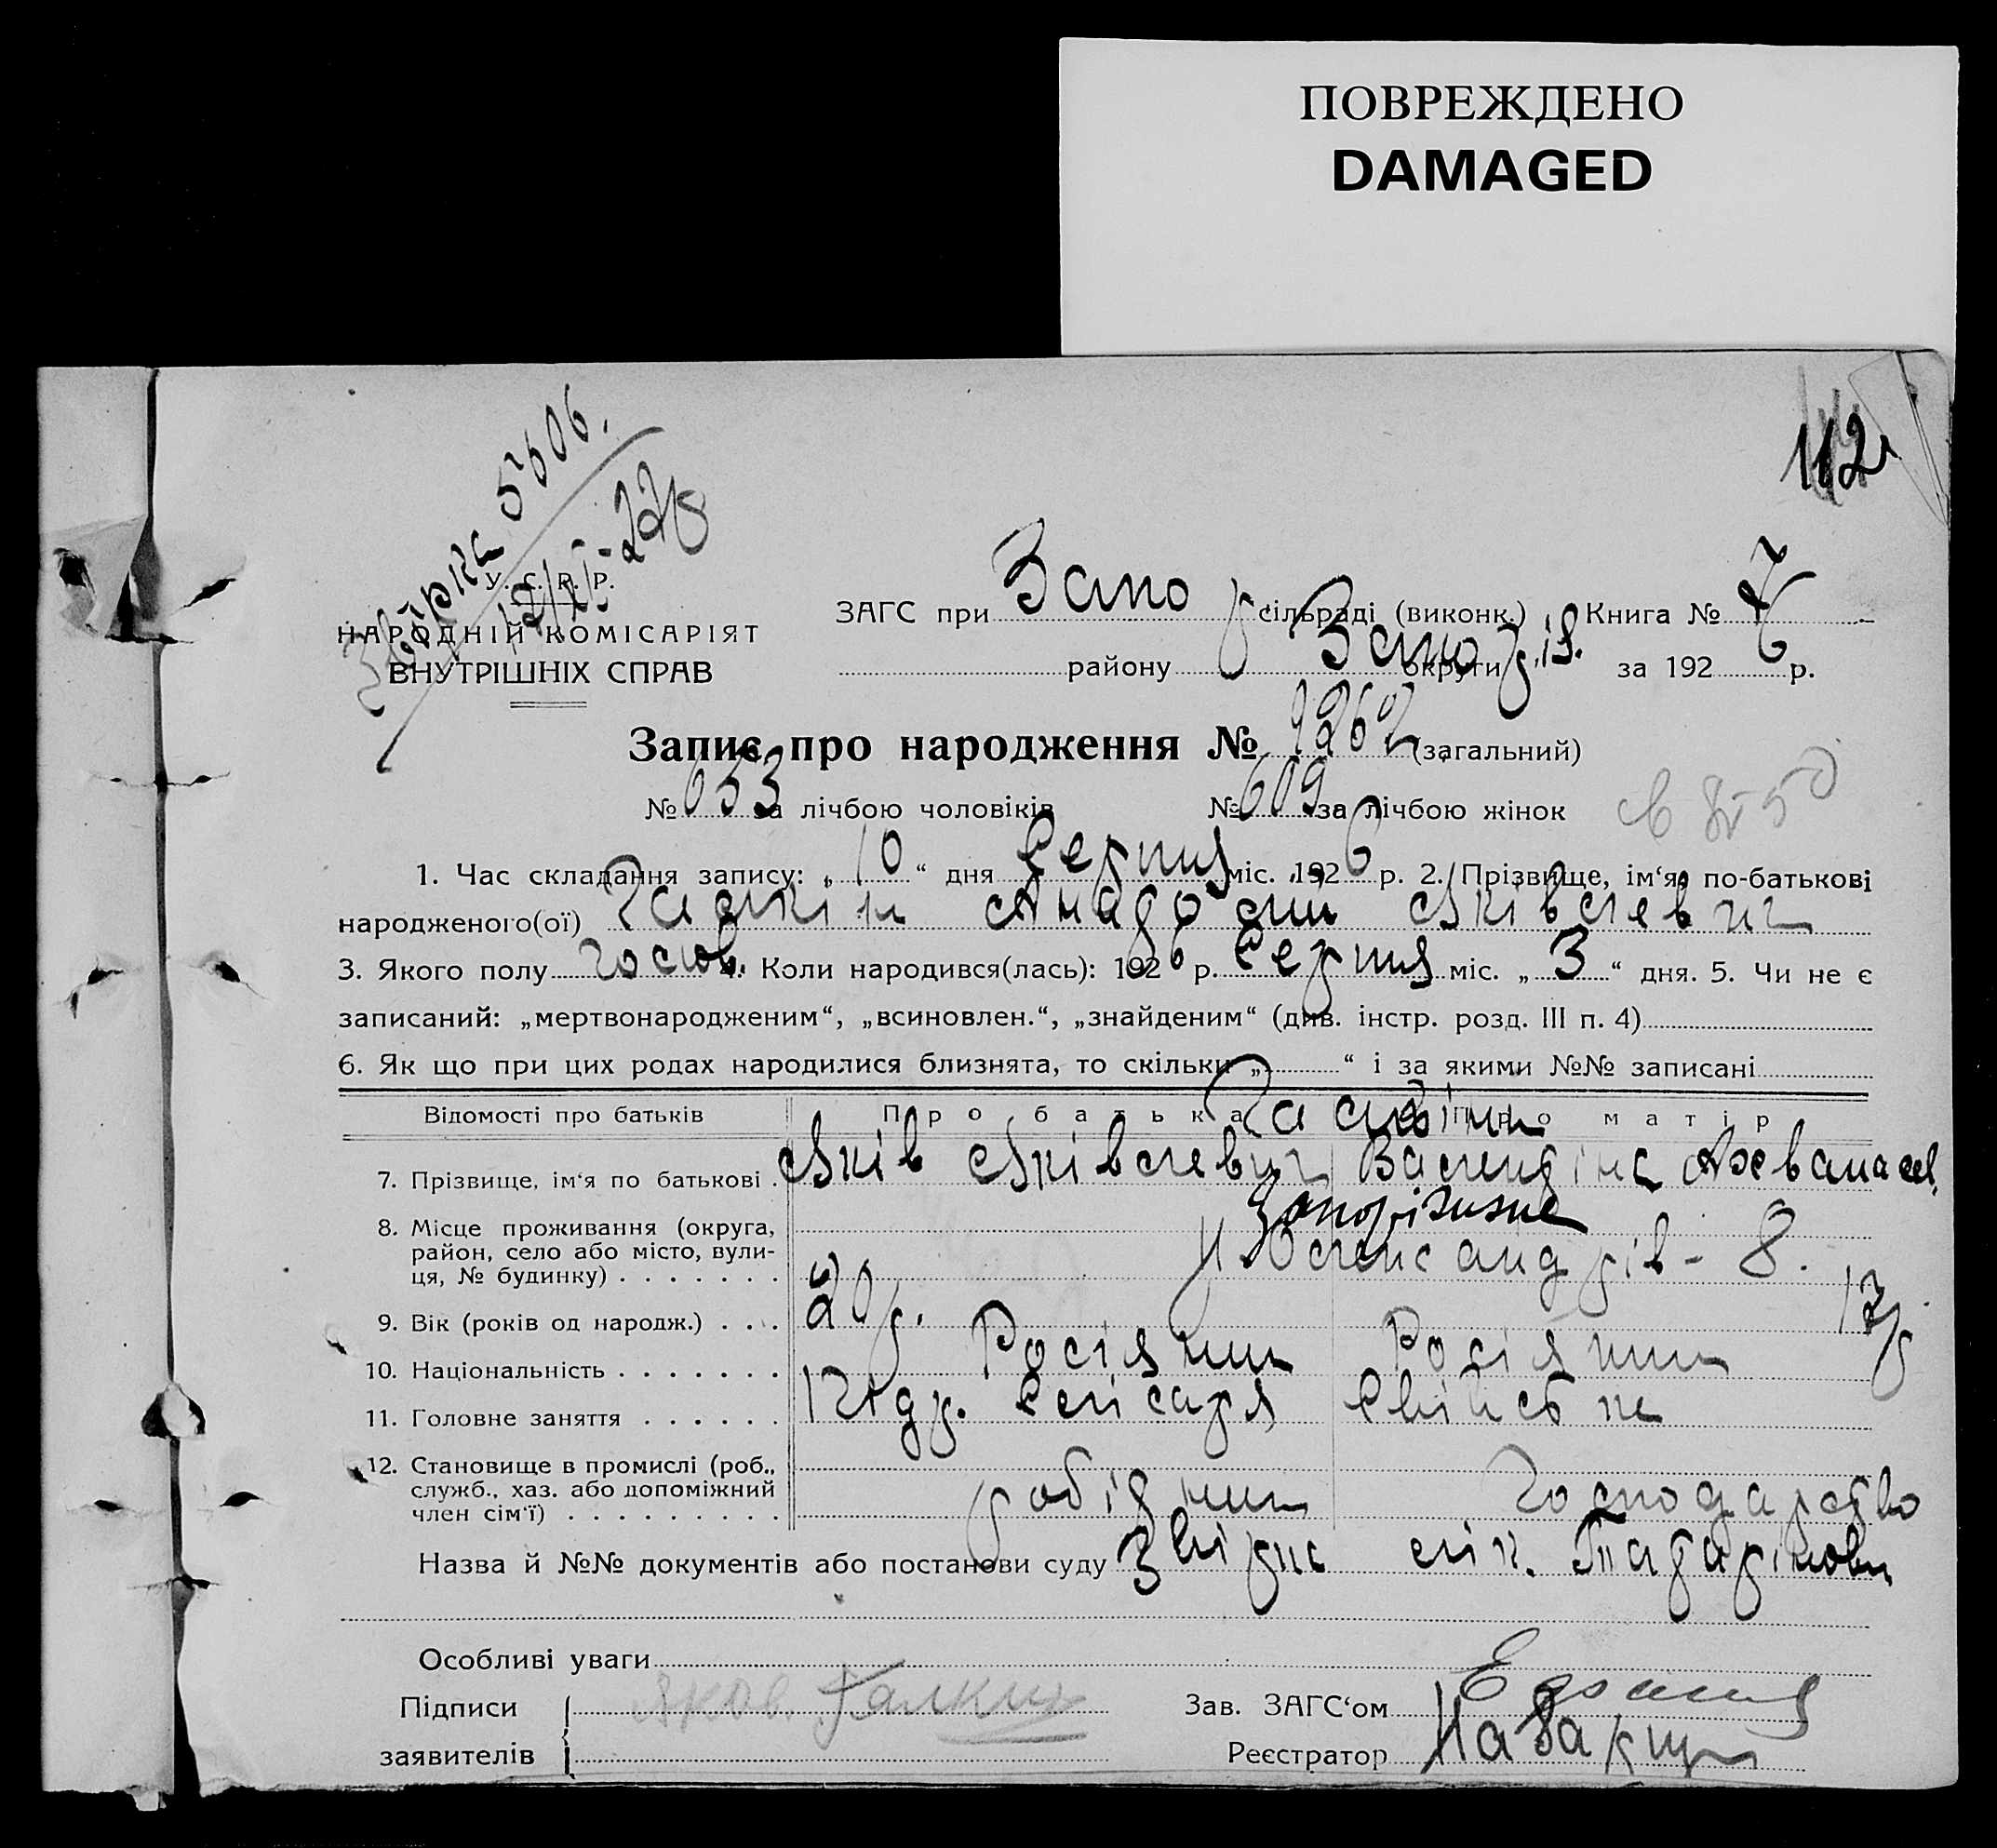 ПОВРЕЖДЕНО
DAMAGED
112
Звірка 5606.
У. С. Р. Р.
НАРОДНІЙ КОМІСАРІЯТ
ВНУТРІШНІХ СПРАВ
ЗАГС при Запо сільраді (виконк.) Книга № 7
району Запоріз. округи за 1926 р.
Запис про народження № 1262 (загальний)
№ 653 за лічбою чоловіків № 609 за лічбою жінок
1. Час складання запису: „10“ дня Серпня міс. 1926 р. 2. Прізвище, ім‘я, по-батькові
народженого(ої) Галкін Анатолій Яківлевич
3. Якого полу чолов. 4. Коли народився(лась): 1926 р. Серпня міс. „3“ дня. 5. Чи не є
записаний: „мертвонародженим“, „всиновлен.“, „знайденим“ (див. інстр. розд. III п. 4)
6. Як що при цих родах народилися близнята, то скільки „ “ і за якими №№ записані
Відомості про батьків Про батька Про матір
Галкіни
7. Прізвище, ім‘я по батькові . Яків Яківлевич Валентіна Афанасев.
8. Місце проживання (округа, Запоріжжє
район, село або місто, вули- Олександрів - 8.
ця, № будинку) . . . . . . .
9. Вік (років од народж.) . . . 20 р.
10. Національність . . . . . . . Росіянин Росіянин
11. Головне заняття . . . . . . Слісаря Свійське
12. Становище в промислі (роб.,
служб., хаз. або допоміжний робідник господарство
член сім‘ї) . . . . . . . . .
Назва й №№ документів або постанови суду Звірка
Особливі уваги
Підписи Яков. Галкин Зав. ЗАГС‘ом
заявителів Реєстратор